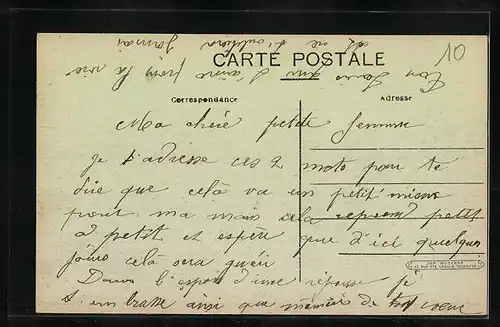 CARTE POSTALE
10
Correspondance
Adresse
Ma chère petite femme
Je t'adresse ces 2 mots pour te
dire que celà va un petit mieux
pour ma main cela reprend petit
à petit et espère que d'ici quelques
jours celà sera guéri
Dans l'espoir d'une réponse je
t'embrasse ainsi que de tout coeur
Ton Louis qui t'aime pour la vie
et ne t'oubliera
Jamais